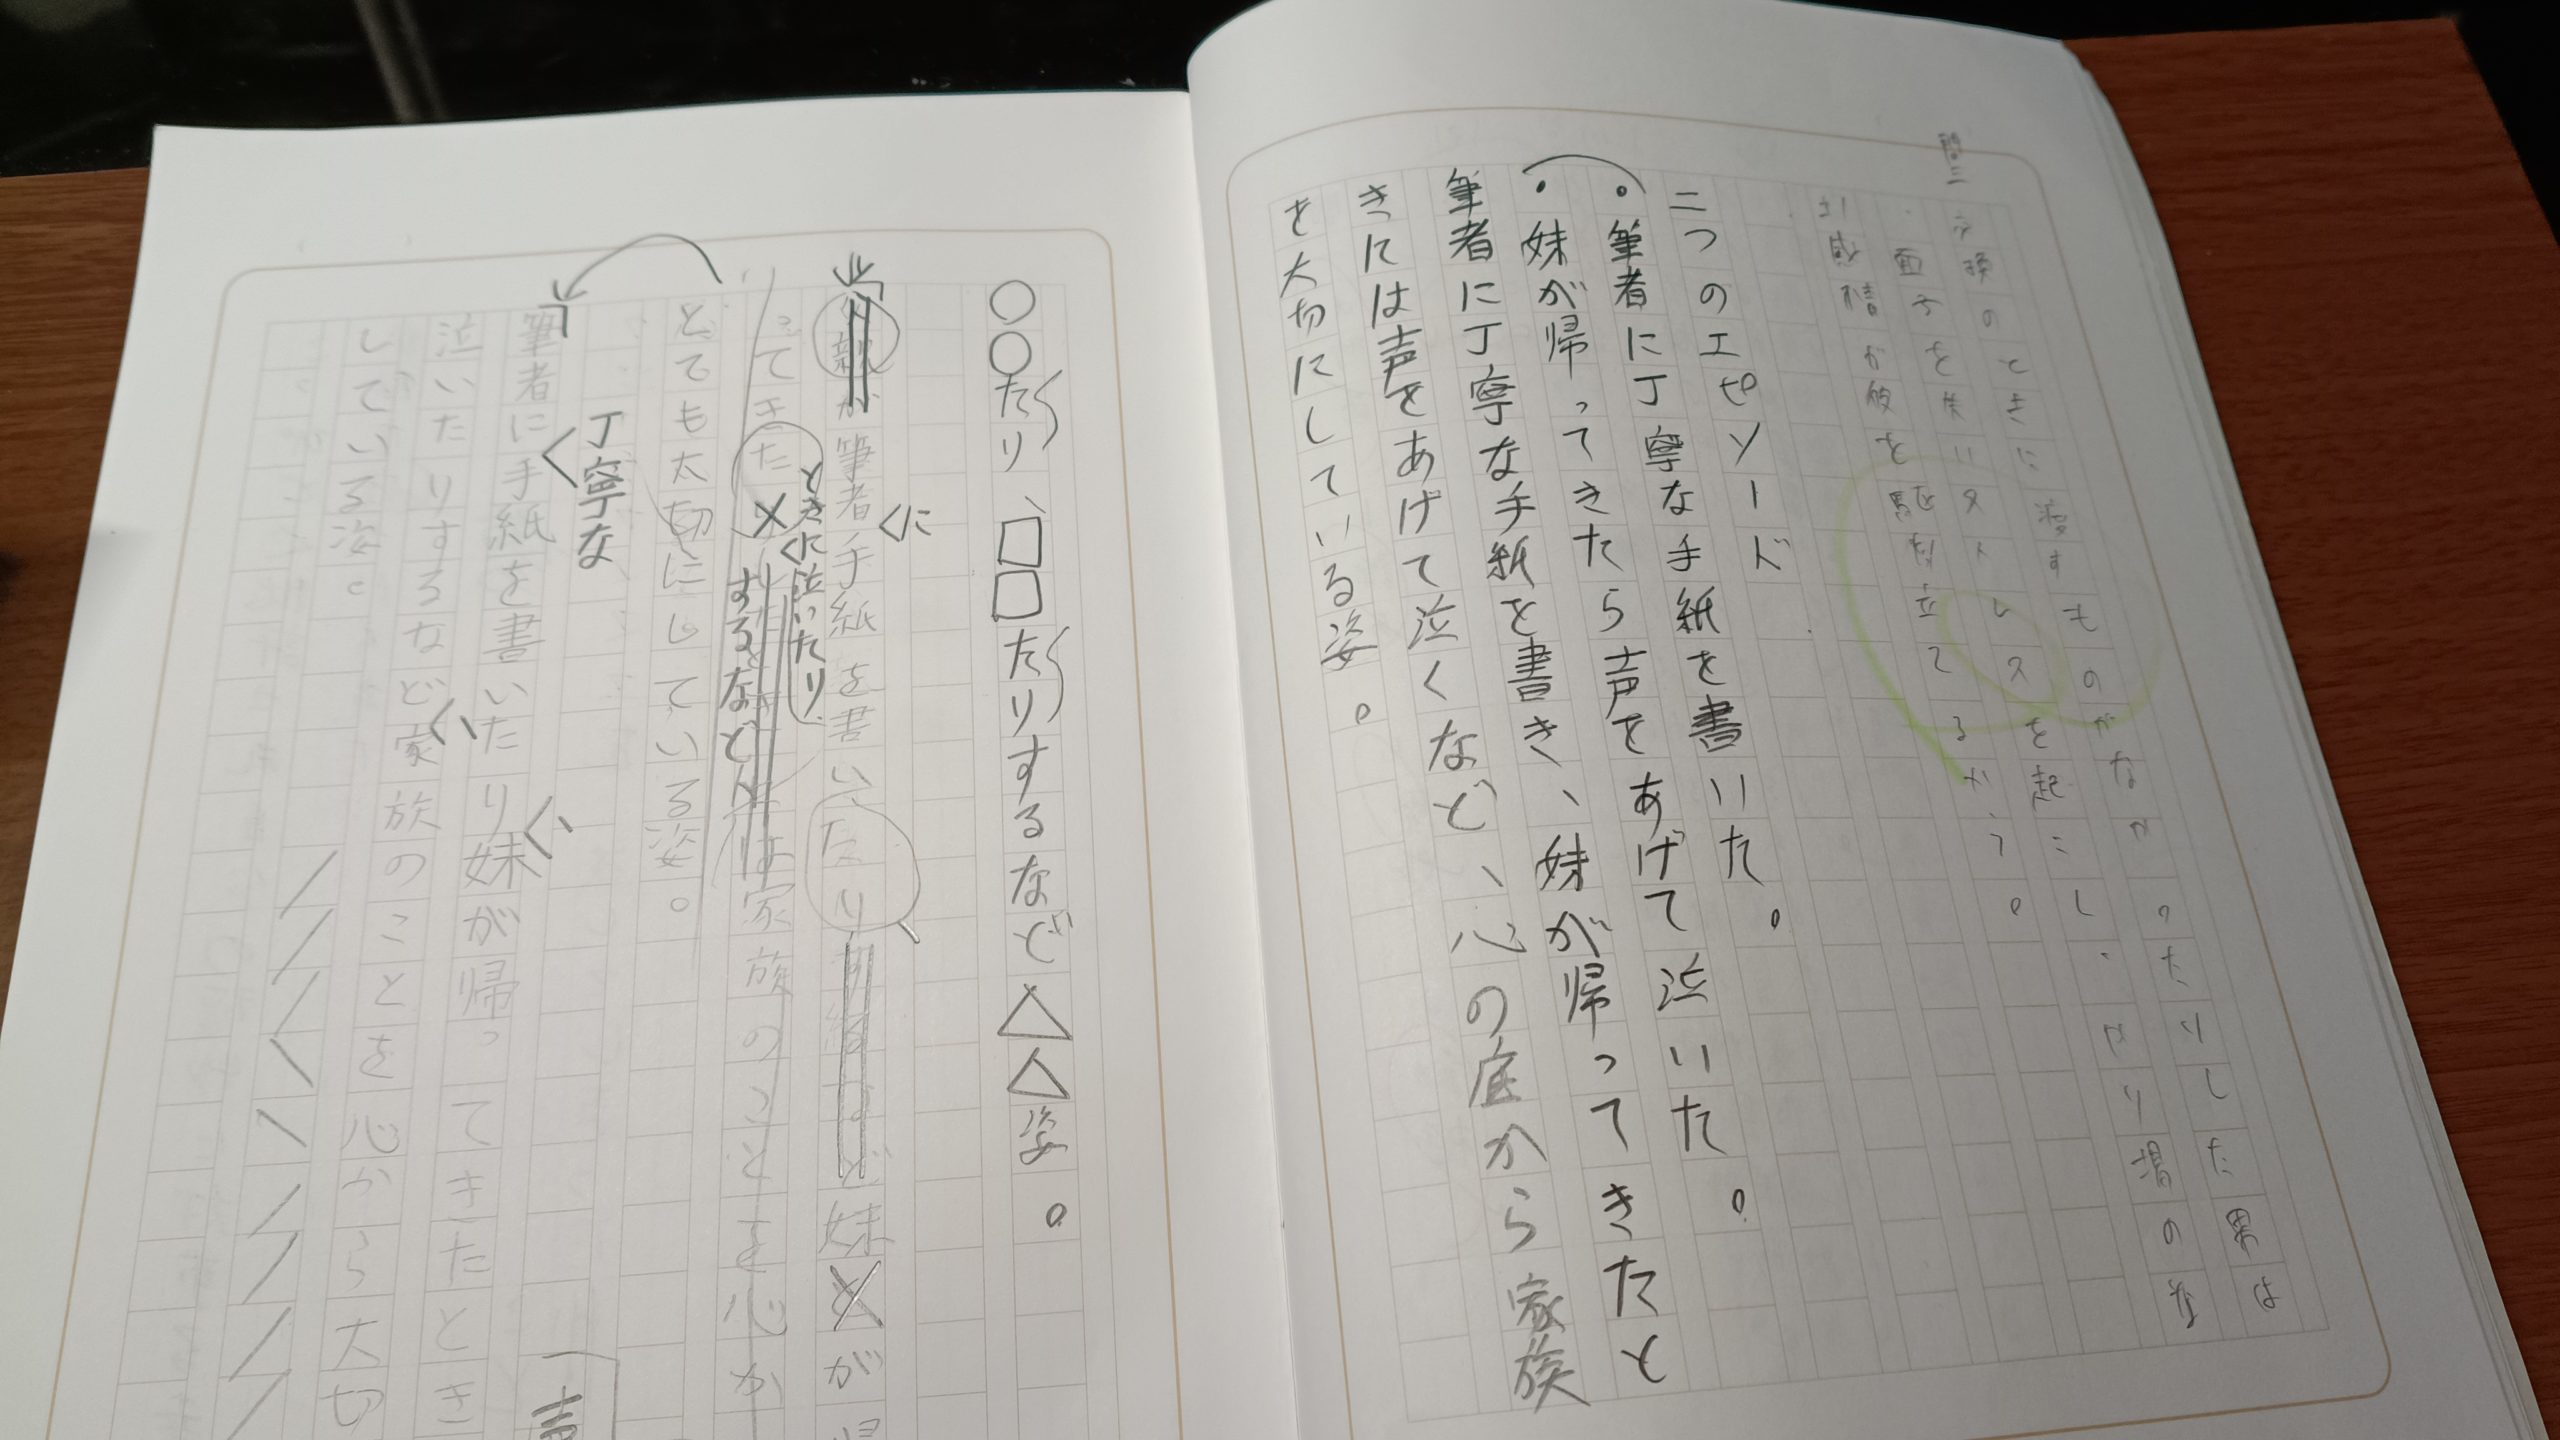 問三
交換のときに渡すものがなかったりした男は
面子を失いストレスを起こし、やり場のな
い感情が彼を駆り立てるから。
二つのエピソード
・筆者に丁寧な手紙を書いた。
・妹が帰ってきたら声をあげて泣いた。
筆者に丁寧な手紙を書き、妹が帰ってきたと
きには声をあげて泣くなど、心の底から家族
を大切にしている姿。
〇〇たり、□□たりするなど△△姿。
が筆者手紙を書いたり
に
妹とが帰
ってきた
ときに泣いたり
するなど
は家族のことを心か
とても大切にしている姿。
丁寧な
筆者に手紙を書いたり妹が帰ってきたとき
泣いたりするなど家族のことを心から大切
している姿。
声